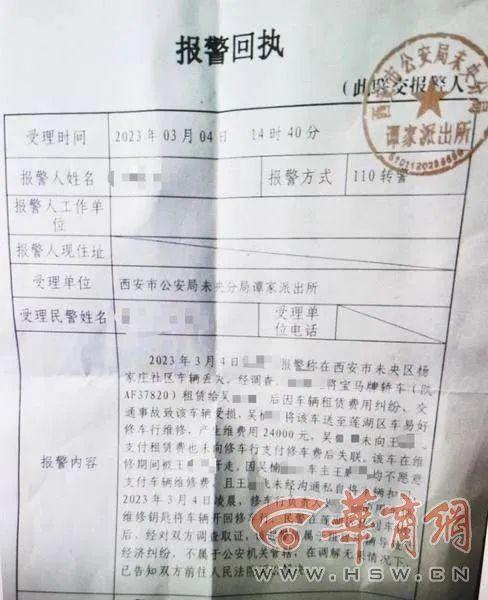 报警回执
(此联交报警人
西安市公安局未央分局
谭家派出所
受理时间
2023年03月04日 14时40分
报警人姓名
报警方式
110转警
报警人工作单
位
报警人现住址
受理单位
西安市公安局未央分局谭家派出所
受理民警姓名
受理单
位电话
报警内容
2023年3月4日 报警称在西安市未央区杨
家庄社区车辆丢失。经调查, 将宝马牌轿车(陕
AF37820)租赁给吴 后因车辆租赁费用纠纷、交
通事故致该车辆受损,吴 将该车送至莲湖区车易好
修车行维修,产生维费用24000元。吴 未向王
支付租赁费也未向修车行支付修车费后失联。该车在维
修期间被王 开走,因吴楠 车主王 均不愿意
支付车辆维修费,且王 未经沟通私自将车辆
2023年3月4日凌晨,修车行负责人
维修钥匙将车辆开回修
后,经对双方调查取证,
经济纠纷,不属于公安机关管辖,在调解无果情况下,
已告知双方前往人民法院
华商网
WWW.HSW.CN